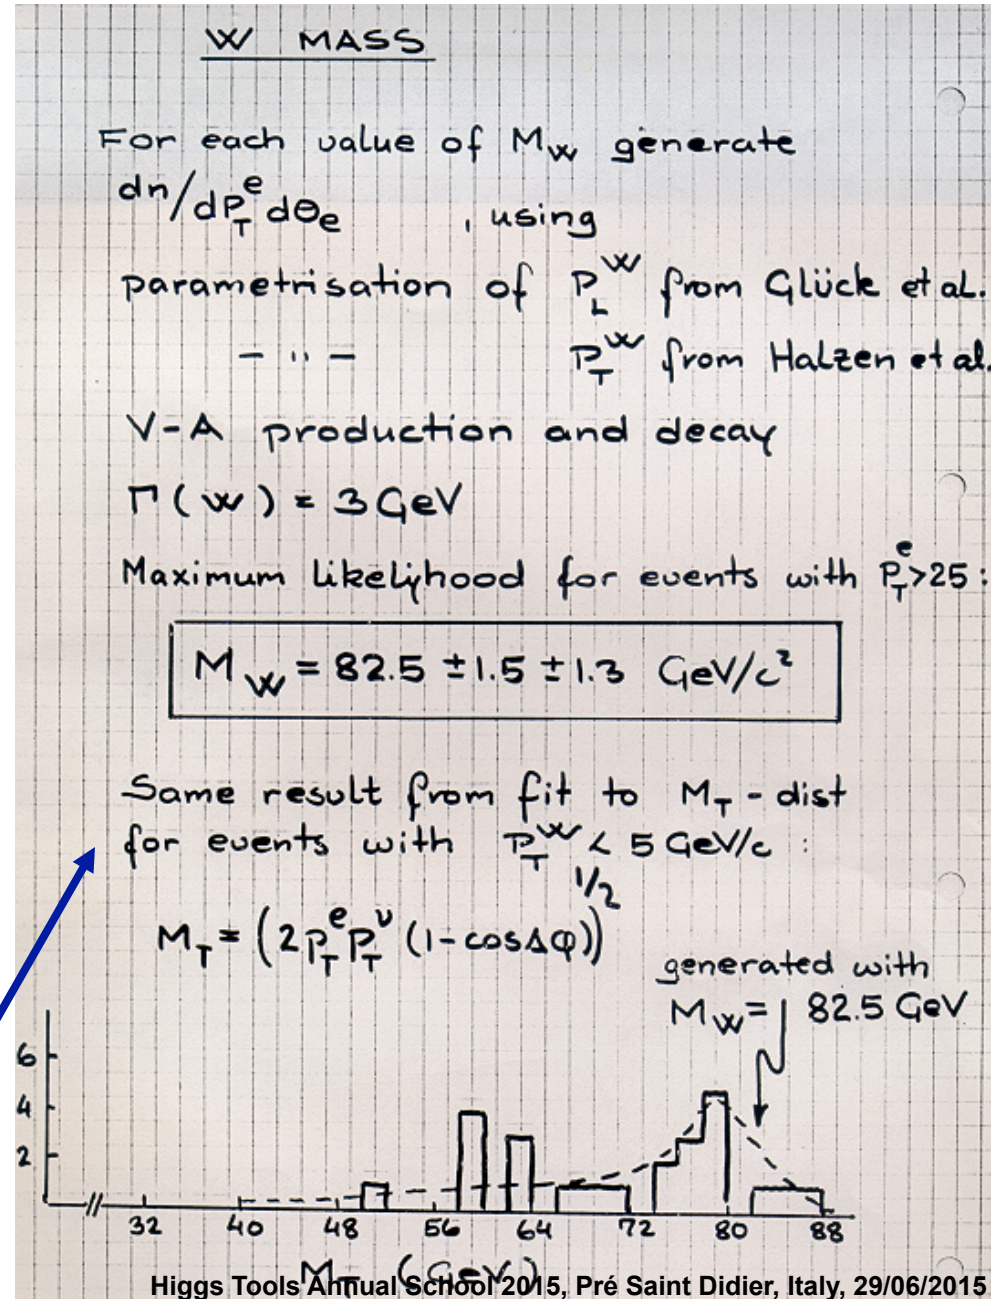 W MASS
For each value of M_W generate
dn/dP_T^e dθ_e , using
parametrisation of P_L^W from Glück et al.
— " — P_T^W from Halzen et al.
V-A production and decay
Γ(W) = 3 GeV
Maximum likelijhood for events with P_T^e>25:
M_W = 82.5 ±1.5 ±1.3 GeV/c²
Same result from fit to M_T - dist
for events with P_T^W < 5 GeV/c :
M_T = (2P_T^e P_T^ν (1-cosΔφ))^1/2
generated with
M_W = 82.5 GeV
6
4
2
32 40 48 56 64 72 80 88
M_T (GeV)
Higgs Tools Annual School 2015, Pré Saint Didier, Italy, 29/06/2015